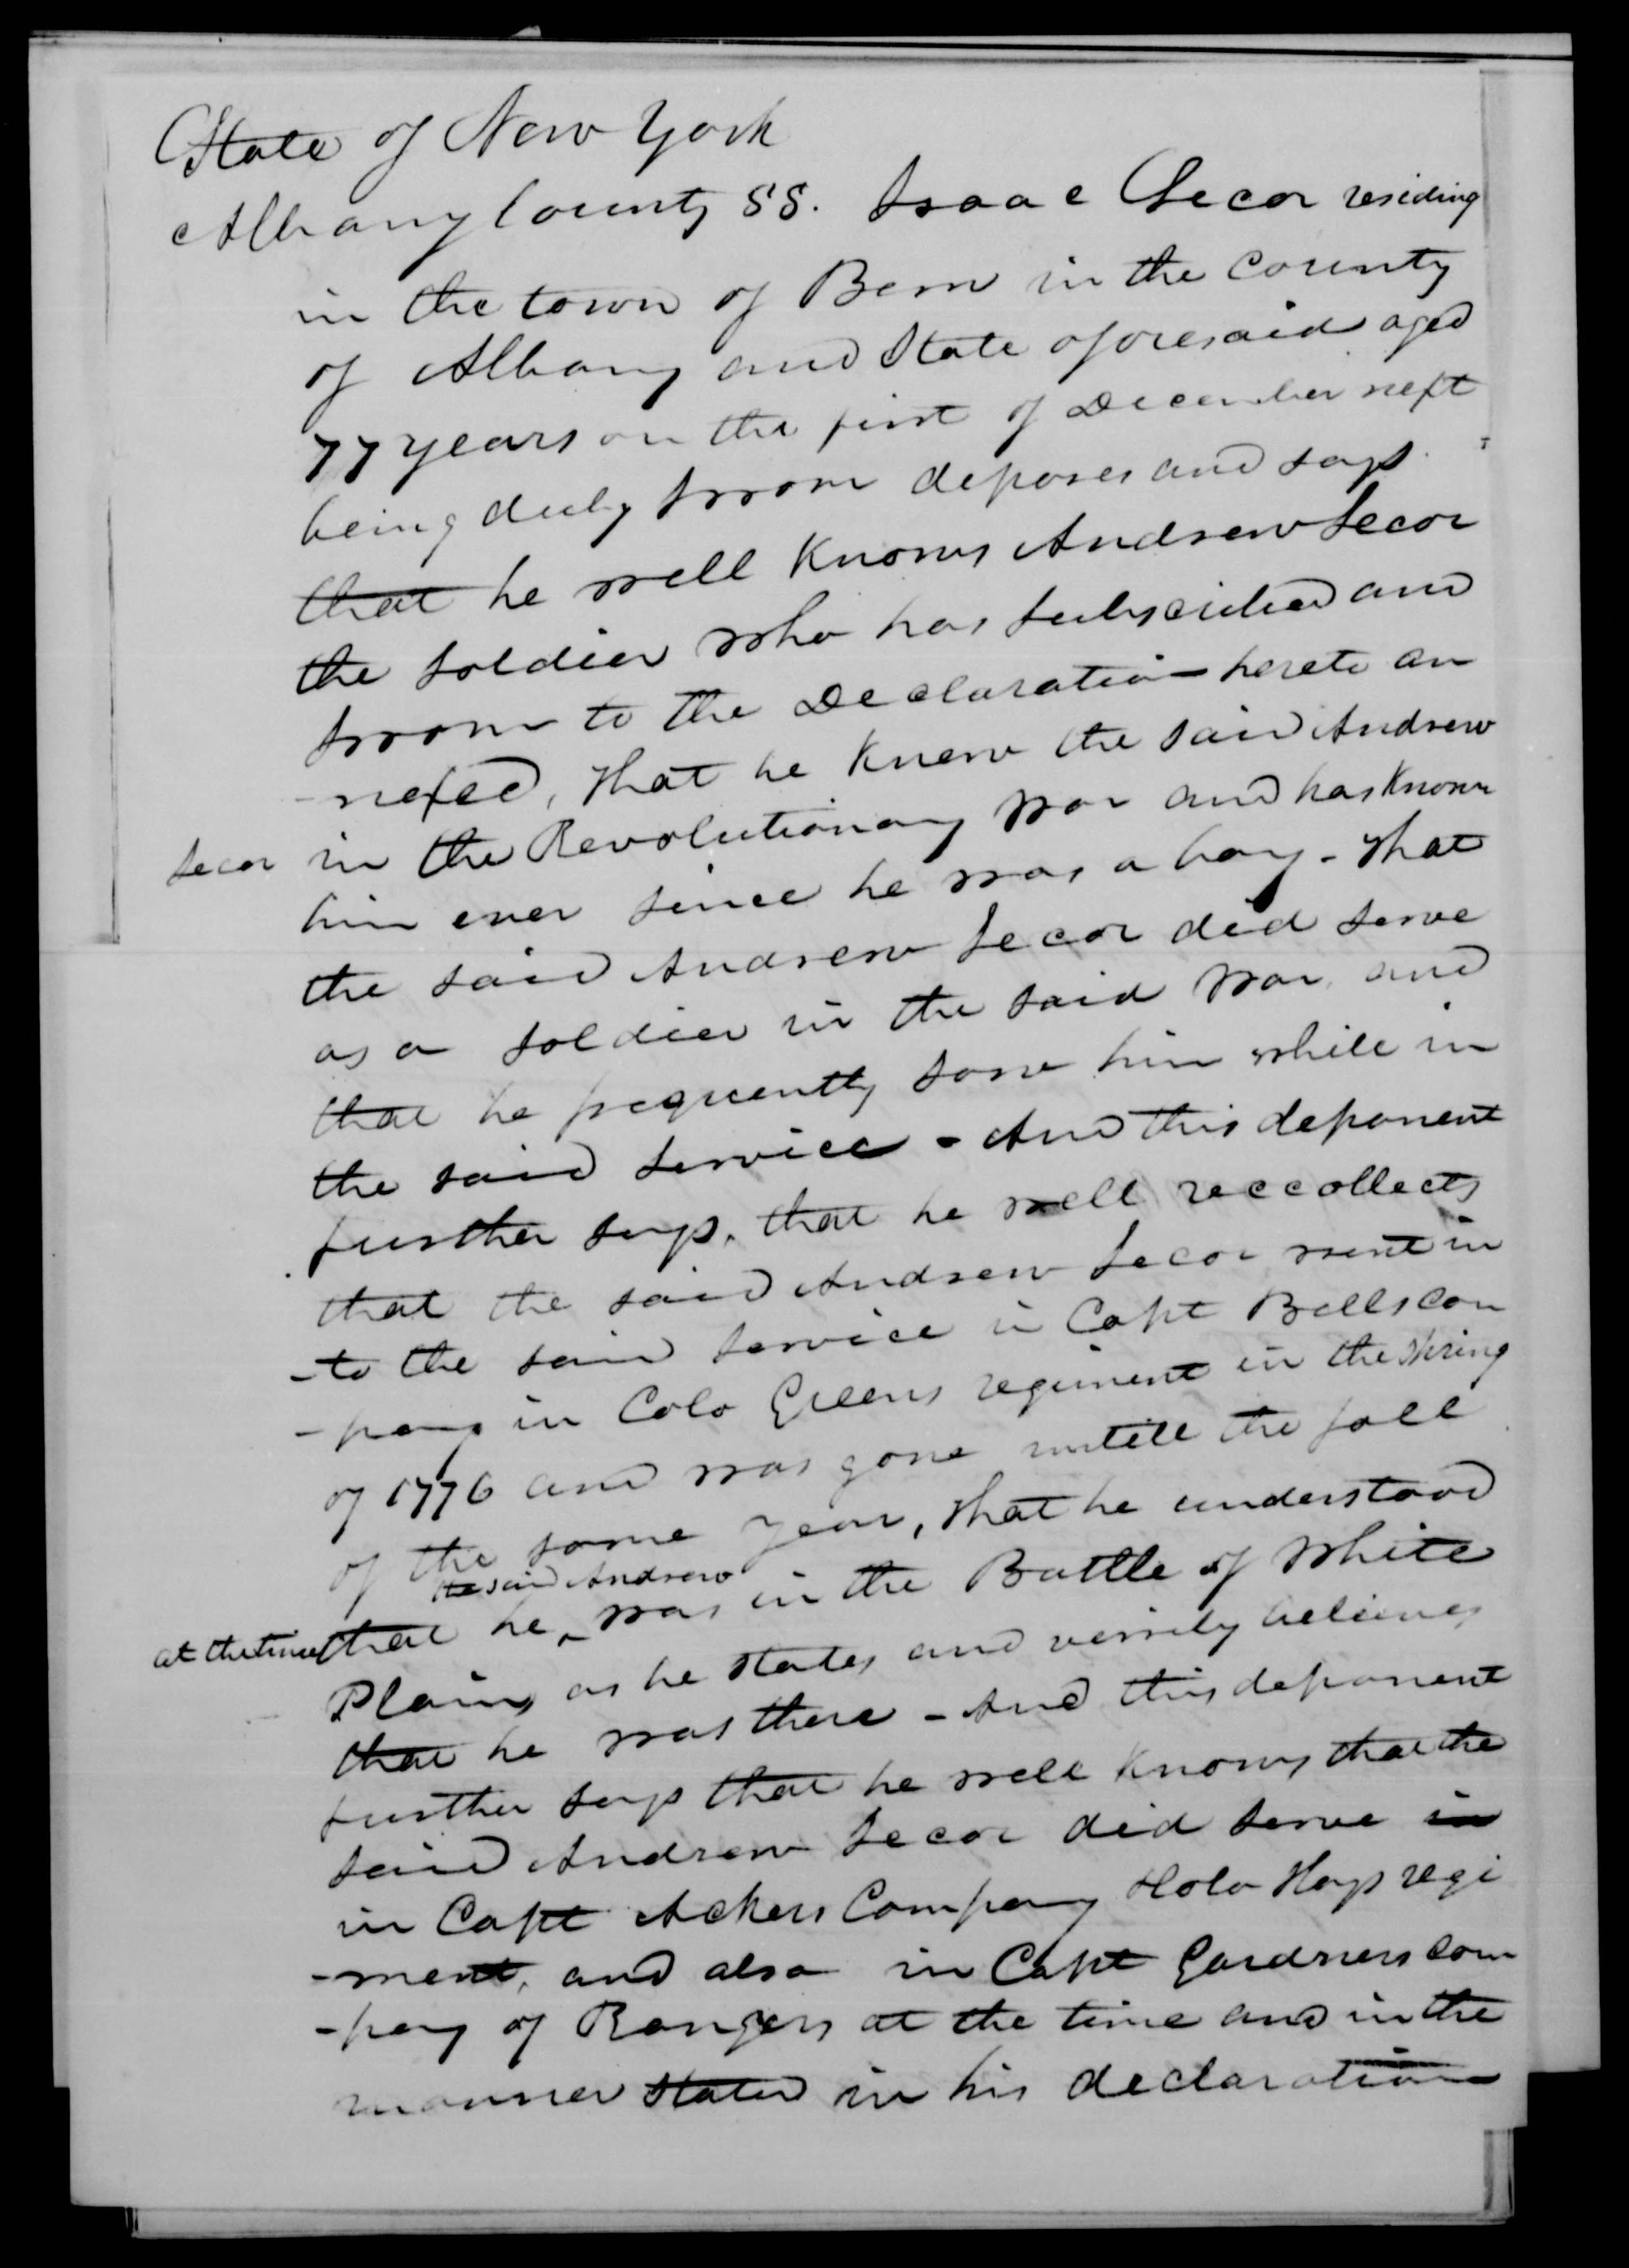 State of New York
Albany County SS. Isaac Secor residing
in the town of Bern in the County
of Albany and State aforesaid aged
77 years on the first of December next
being duly sworn deposes and says
that he well knows Andrew Secor
the soldier who has subscribed and
sworn to the Declaration hereto an
-nexed, that he knew the said Andrew
Secor in the Revolutionary War and has known
him ever since he was a boy - that
the said Andrew Secor did serve
as a soldier in the said War, and
that he frequently saw him while in
the said service - And this deponent
further says, that he well reccollects
that the said Andrew Secor went in
-to the said service in Capt Bells com
-pany in Colo Greens regiment in the Spring
of 1776 and was gone untill the fall
of the same year, that he understood
the said Andrew
at the time that he was in the Battle of White
Plains as he states and verrily believes
that he was there - And this deponent
further says that he well knows that the
said Andrew Secor did serve in
in Capt Ackers Company Colo Hays regi
-ment, and also in Capt Gardners com
-pany of Rangers at the time and in the
manner stated in his declaration